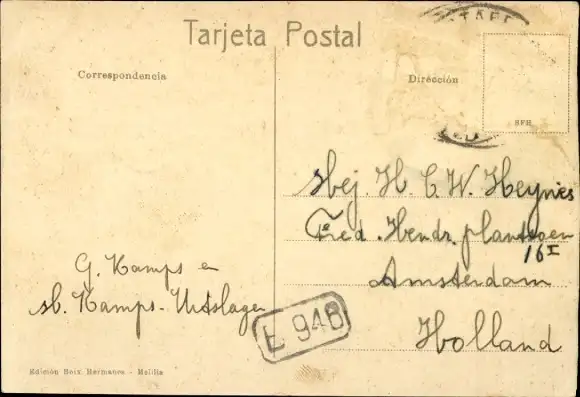 Tarjeta Postal
Correspondencia
Dirección
SFH
Mej. H. C. W. Heynes
Fred. Hendr. plantsoen
16 I
Amsterdam
Holland
G. Kamps e
Kamps-Uitslager
E 948
Edición Boix Hermanos - Melilla